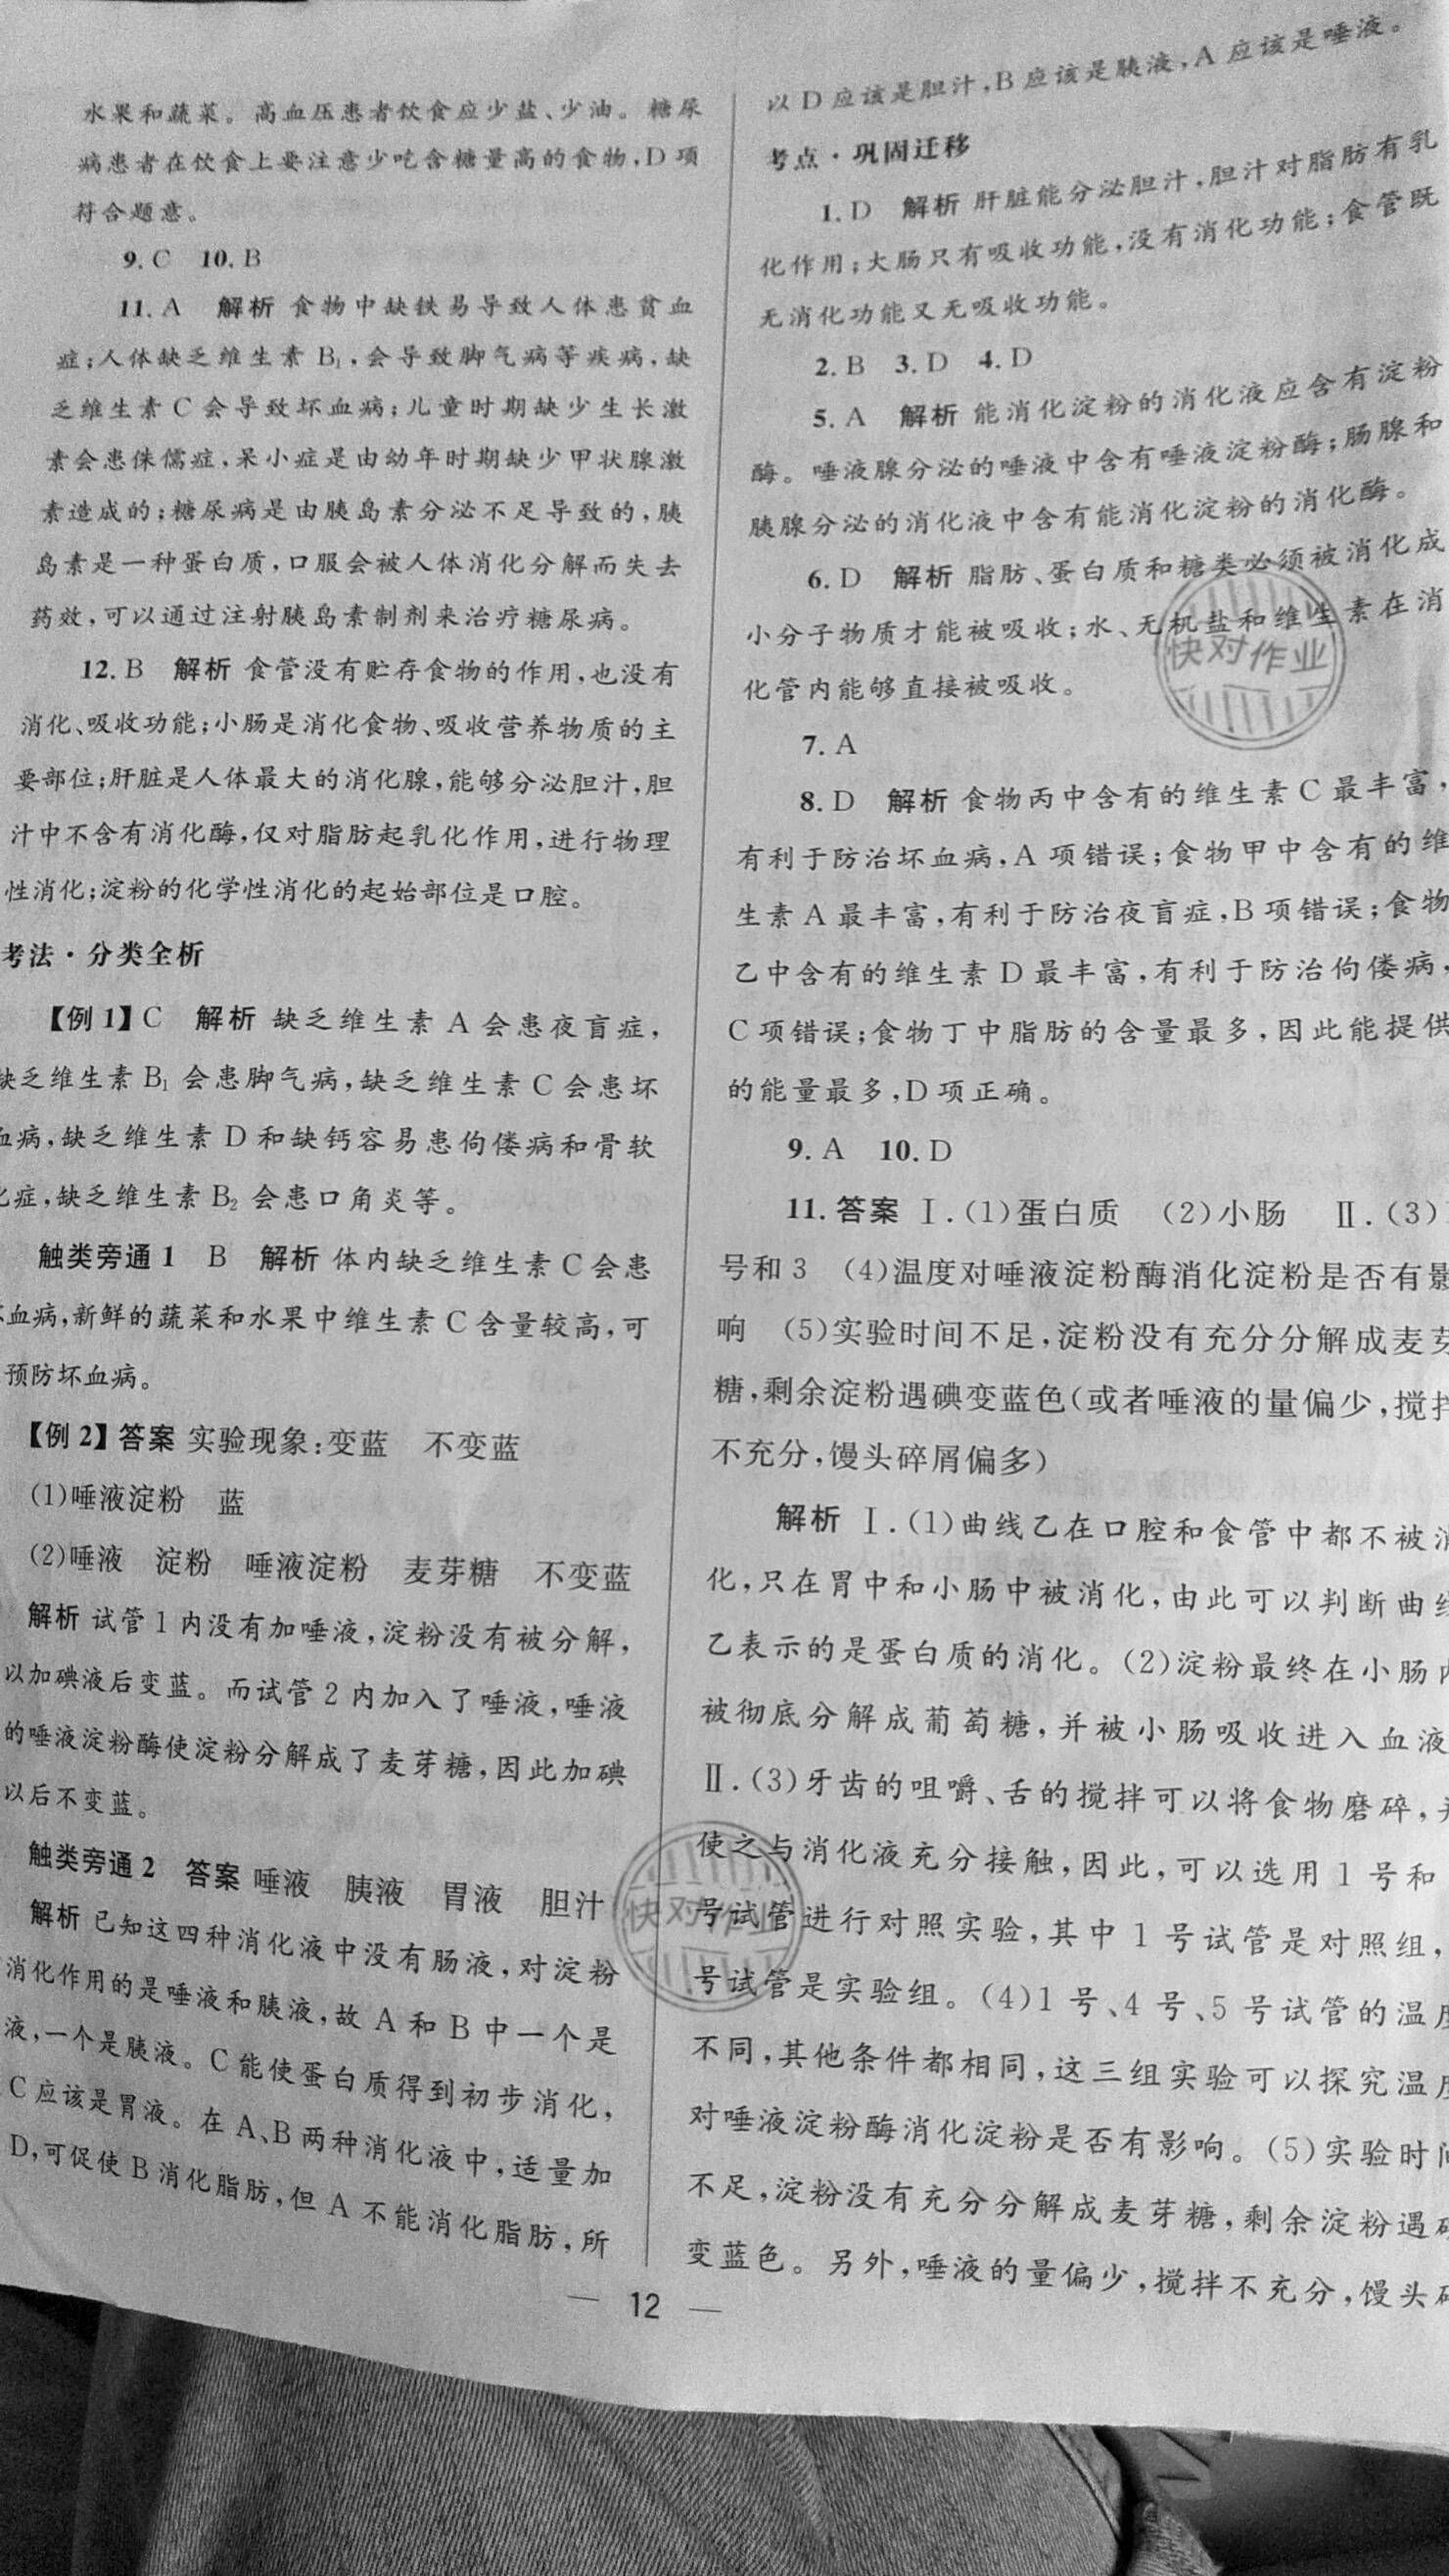 水果和蔬菜。高血压患者饮食应少盐、少油。糖尿
病患者在饮食上要注意少吃含糖量高的食物,D项
符合题意。
9. C 10. B
11. A 解析 食物中缺铁易导致人体患贫血
症;人体缺乏维生素B₁,会导致脚气病等疾病,缺
乏维生素C会导致坏血病;儿童时期缺少生长激
素会患侏儒症,呆小症是由幼年时期缺少甲状腺激
素造成的;糖尿病是由胰岛素分泌不足导致的,胰
岛素是一种蛋白质,口服会被人体消化分解而失去
药效,可以通过注射胰岛素制剂来治疗糖尿病。
12. B 解析 食管没有贮存食物的作用,也没有
消化、吸收功能;小肠是消化食物、吸收营养物质的主
要部位;肝脏是人体最大的消化腺,能够分泌胆汁,胆
汁中不含有消化酶,仅对脂肪起乳化作用,进行物理
性消化;淀粉的化学性消化的起始部位是口腔。
考法·分类全析
【例1】C 解析 缺乏维生素A会患夜盲症,
缺乏维生素B₁会患脚气病,缺乏维生素C会患坏
血病,缺乏维生素D和缺钙容易患佝偻病和骨软
化症,缺乏维生素B₂会患口角炎等。
触类旁通1 B 解析 体内缺乏维生素C会患
坏血病,新鲜的蔬菜和水果中维生素C含量较高,可
预防坏血病。
【例2】答案 实验现象:变蓝 不变蓝
(1)唾液淀粉 蓝
(2)唾液 淀粉 唾液淀粉 麦芽糖 不变蓝
解析 试管1内没有加唾液,淀粉没有被分解,
以加碘液后变蓝。而试管2内加入了唾液,唾液
的唾液淀粉酶使淀粉分解成了麦芽糖,因此加碘
以后不变蓝。
触类旁通2 答案 唾液 胰液 胃液 胆汁
解析 已知这四种消化液中没有肠液,对淀粉
消化作用的是唾液和胰液,故A和B中一个是
液,一个是胰液。C能使蛋白质得到初步消化,
C应该是胃液。在A、B两种消化液中,适量加
D,可促使B消化脂肪,但A不能消化脂肪,所
以D应该是胆汁,B应该是胰液,A应该是唾液。
考点·巩固迁移
1. D 解析 肝脏能分泌胆汁,胆汁对脂肪有乳
化作用;大肠只有吸收功能,没有消化功能;食管既
无消化功能又无吸收功能。
2. B 3. D 4. D
5. A 解析 能消化淀粉的消化液应含有淀粉
酶。唾液腺分泌的唾液中含有唾液淀粉酶;肠腺和
胰腺分泌的消化液中含有能消化淀粉的消化酶。
6. D 解析 脂肪、蛋白质和糖类必须被消化成
小分子物质才能被吸收;水、无机盐和维生素在消
化管内能够直接被吸收。
7. A
8. D 解析 食物丙中含有的维生素C最丰富,
有利于防治坏血病,A项错误;食物甲中含有的维
生素A最丰富,有利于防治夜盲症,B项错误;食物
乙中含有的维生素D最丰富,有利于防治佝偻病,
C项错误;食物丁中脂肪的含量最多,因此能提供
的能量最多,D项正确。
9. A 10. D
11. 答案 Ⅰ.(1)蛋白质 (2)小肠 Ⅱ.(3)
号和3 (4)温度对唾液淀粉酶消化淀粉是否有影
响 (5)实验时间不足,淀粉没有充分分解成麦芽
糖,剩余淀粉遇碘变蓝色(或者唾液的量偏少,搅拌
不充分,馒头碎屑偏多)
解析 Ⅰ.(1)曲线乙在口腔和食管中都不被消
化,只在胃中和小肠中被消化,由此可以判断曲线
乙表示的是蛋白质的消化。(2)淀粉最终在小肠内
被彻底分解成葡萄糖,并被小肠吸收进入血液
Ⅱ.(3)牙齿的咀嚼、舌的搅拌可以将食物磨碎,并
使之与消化液充分接触,因此,可以选用1号和
号试管进行对照实验,其中1号试管是对照组,
号试管是实验组。(4)1号、4号、5号试管的温度
不同,其他条件都相同,这三组实验可以探究温度
对唾液淀粉酶消化淀粉是否有影响。(5)实验时间
不足,淀粉没有充分分解成麦芽糖,剩余淀粉遇碘
变蓝色。另外,唾液的量偏少,搅拌不充分,馒头碎
— 12 —
快对作业
快对作业